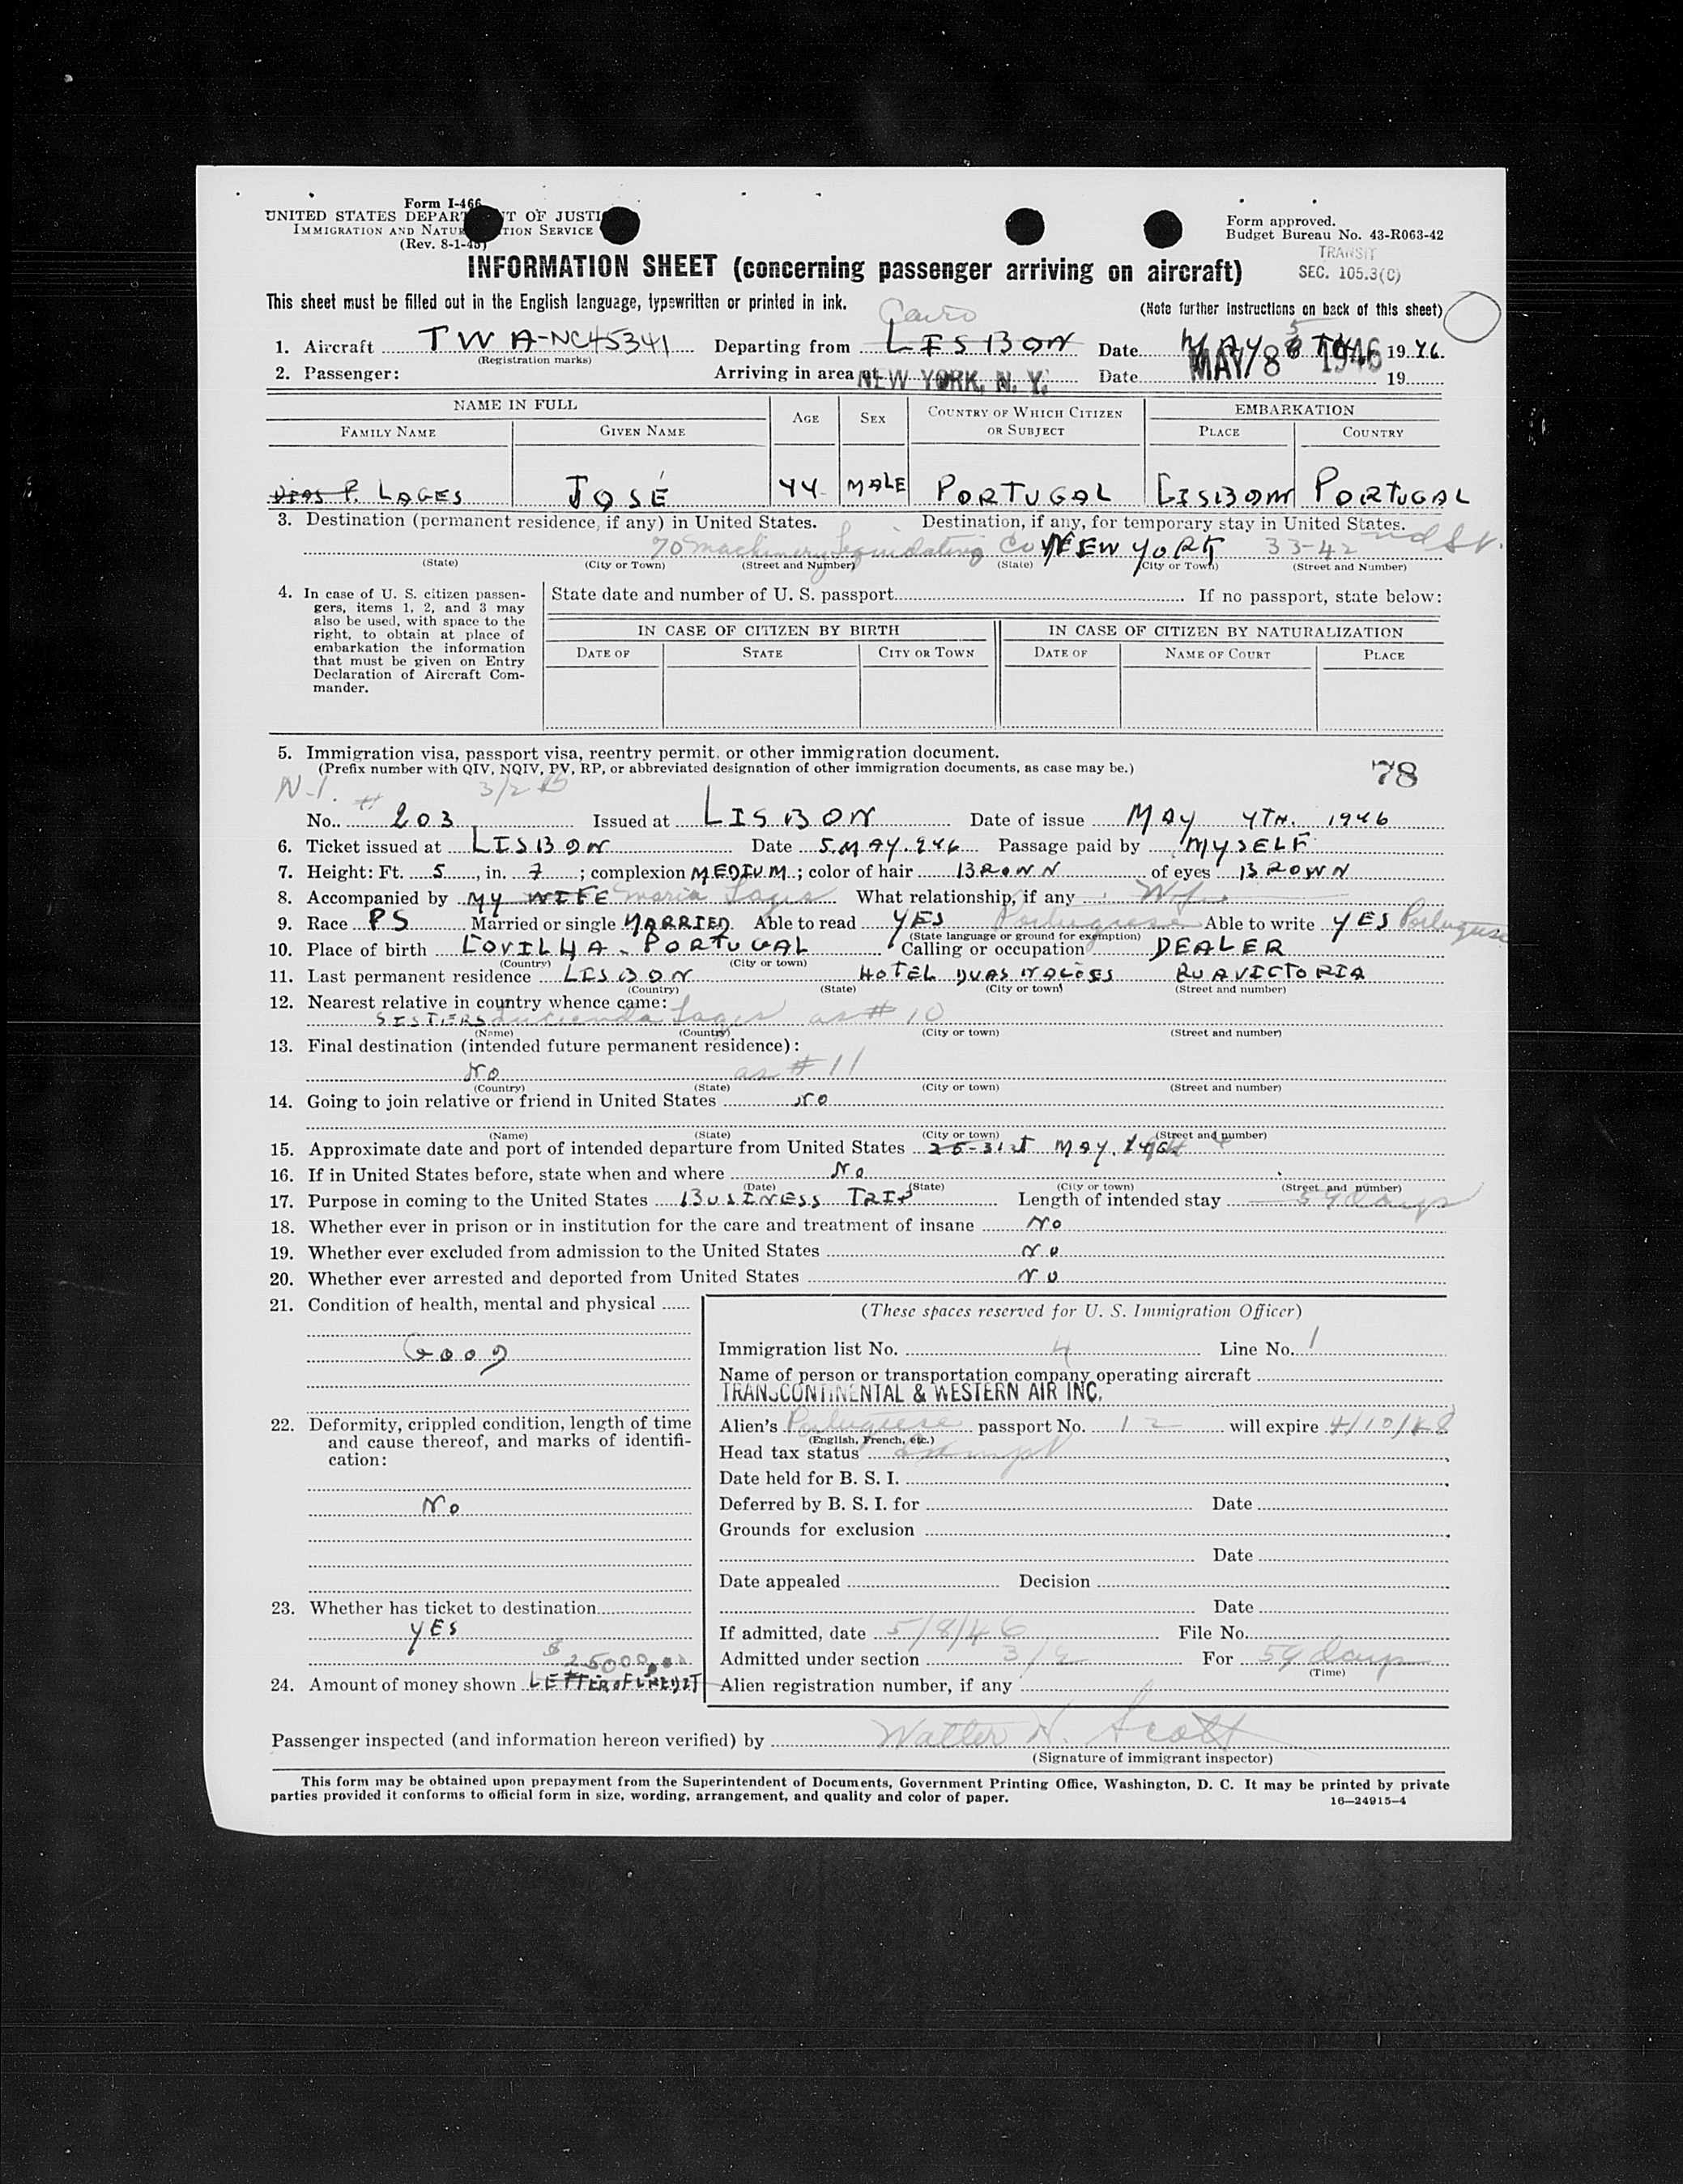 Form I-466
UNITED STATES DEPARTMENT OF JUSTICE
IMMIGRATION AND NATURALIZATION SERVICE
(Rev. 8-1-45)
Form approved.
Budget Bureau No. 43-R063-42
TRANSIT
SEC. 105.3(C)
INFORMATION SHEET (concerning passenger arriving on aircraft)
This sheet must be filled out in the English language, typewritten or printed in ink.
(Note further instructions on back of this sheet)
Cairo
1. Aircraft TWA-NC45341 Departing from LISBON Date MAY 5 TH 1946
(Registration marks)
2. Passenger: Arriving in area at NEW YORK, N. Y. Date MAY 8 1946 19
NAME IN FULL AGE SEX COUNTRY OF WHICH CITIZEN OR SUBJECT EMBARKATION
FAMILY NAME GIVEN NAME PLACE COUNTRY
DIAS P. LAGES JOSÉ 44 MALE PORTUGAL LISBON PORTUGAL
3. Destination (permanent residence, if any) in United States. Destination, if any, for temporary stay in United States.
70 Machinery Liquidating Co NEW YORK 33-42 nd St.
(State) (City or Town) (Street and Number) (State) (City or Town) (Street and Number)
4. In case of U. S. citizen passengers, items 1, 2, and 3 may also be used, with space to the right, to obtain at place of embarkation the information that must be given on Entry Declaration of Aircraft Commander.
State date and number of U. S. passport If no passport, state below:
IN CASE OF CITIZEN BY BIRTH IN CASE OF CITIZEN BY NATURALIZATION
DATE OF STATE CITY OR TOWN DATE OF NAME OF COURT PLACE
5. Immigration visa, passport visa, reentry permit, or other immigration document.
(Prefix number with QIV, NQIV, PV, RP, or abbreviated designation of other immigration documents, as case may be.)
78
N-1. # 3/2
No. 203 Issued at LISBON Date of issue MAY 4TH. 1946
6. Ticket issued at LISBON Date 5.MAY.946 Passage paid by MYSELF
7. Height: Ft. 5, in. 7; complexion MEDIUM; color of hair BROWN of eyes BROWN
8. Accompanied by MY WIFE Maria Lages What relationship, if any
9. Race PS Married or single MARRIED Able to read YES Portuguese Able to write YES Portuguese
(State language or ground for exemption)
10. Place of birth COVILHA - PORTUGAL Calling or occupation DEALER
(Country) (City or town)
11. Last permanent residence LISBON HOTEL DUAS NAÇÕES RUA VICTORIA
(Country) (State) (City or town) (Street and number)
12. Nearest relative in country whence came:
SISTERS Lages as # 10
(Name) (Country) (City or town) (Street and number)
13. Final destination (intended future permanent residence):
NO as # 11
(Country) (State) (City or town) (Street and number)
14. Going to join relative or friend in United States NO
(Name) (State) (City or town) (Street and number)
15. Approximate date and port of intended departure from United States 25-31st MAY. 1946
16. If in United States before, state when and where NO
(Date) (State) (City or town) (Street and number)
17. Purpose in coming to the United States BUSINESS TRIP Length of intended stay 59 days
18. Whether ever in prison or in institution for the care and treatment of insane NO
19. Whether ever excluded from admission to the United States NO
20. Whether ever arrested and deported from United States NO
21. Condition of health, mental and physical
GOOD
22. Deformity, crippled condition, length of time and cause thereof, and marks of identification:
NO
23. Whether has ticket to destination
YES
$ 25000,00
24. Amount of money shown LETTER OF CREDIT
(These spaces reserved for U. S. Immigration Officer)
Immigration list No. 4 Line No. 1
Name of person or transportation company operating aircraft
TRANSCONTINENTAL & WESTERN AIR INC.
Alien's Portuguese passport No. 12 will expire 4/10/48
(English, French, etc.)
Head tax status Exempt
Date held for B. S. I.
Deferred by B. S. I. for Date
Grounds for exclusion
Date
Date appealed Decision
Date
If admitted, date 5/8/46 File No.
Admitted under section 3/2 For 59 days
(Time)
Alien registration number, if any
Passenger inspected (and information hereon verified) by Walter N. Scott
(Signature of immigrant inspector)
This form may be obtained upon prepayment from the Superintendent of Documents, Government Printing Office, Washington, D. C. It may be printed by private
parties provided it conforms to official form in size, wording, arrangement, and quality and color of paper.
16—24915-4